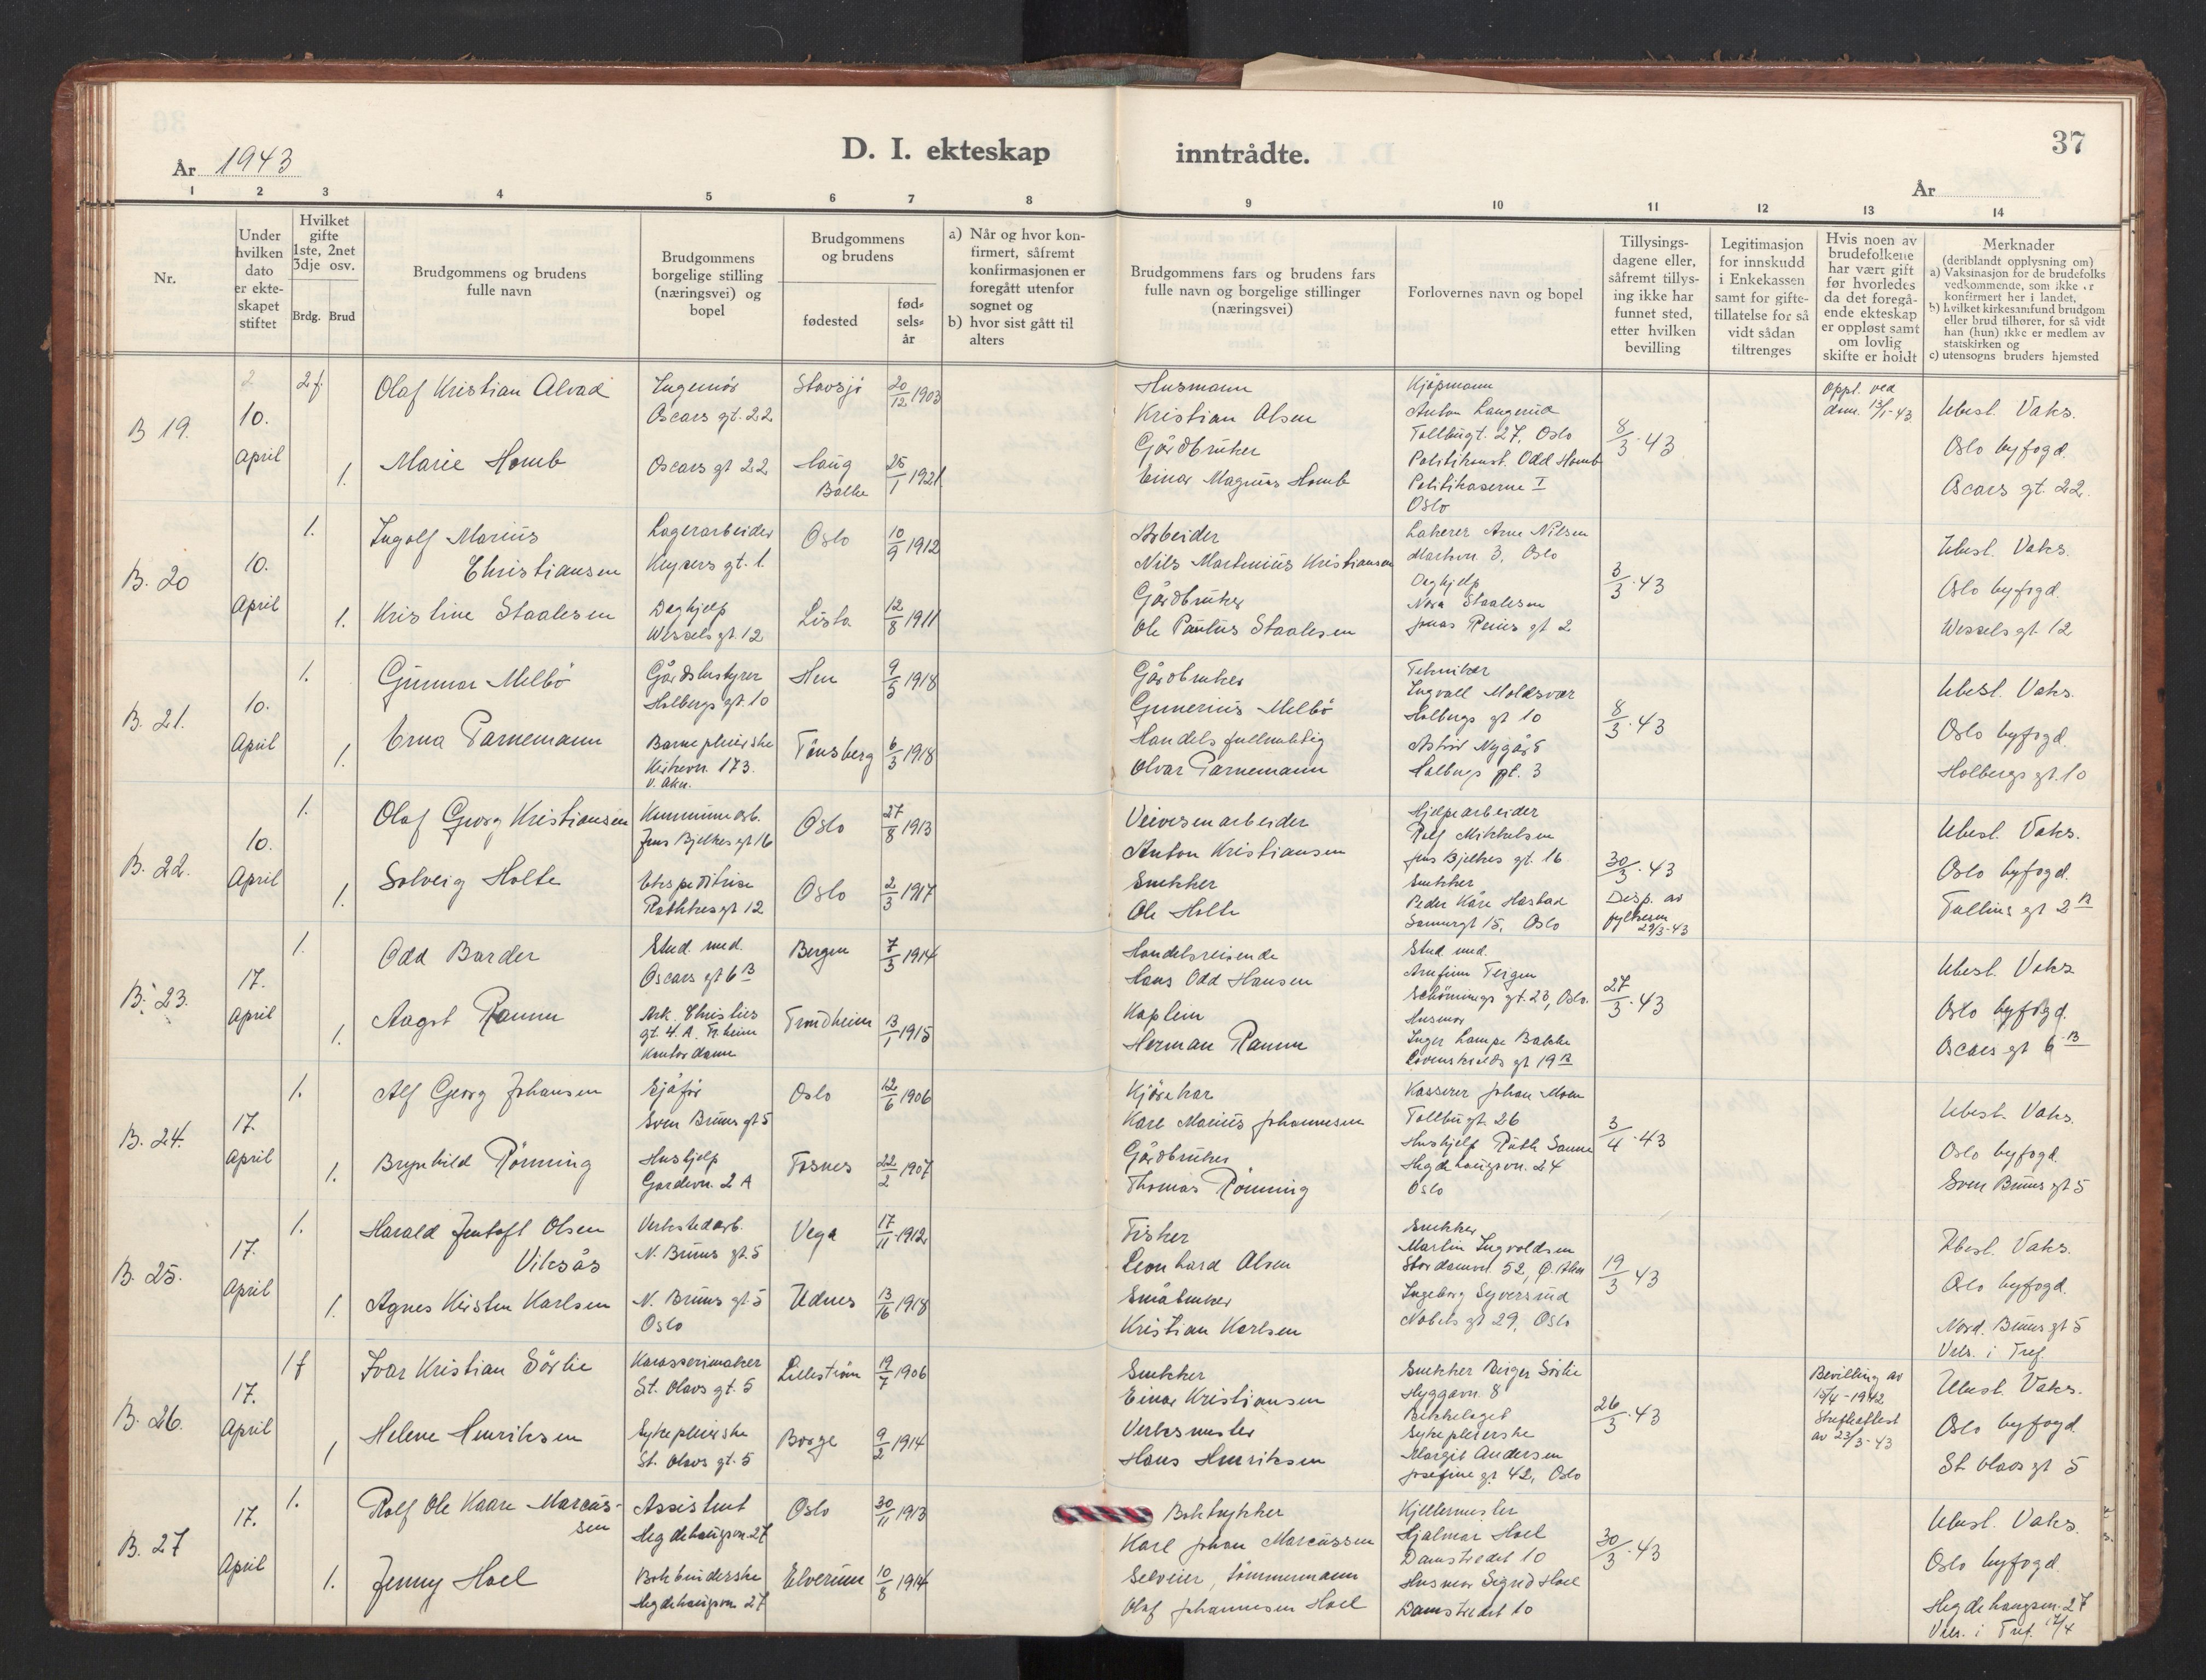 37
År 1943
D. I. ekteskap inntrådte.
År
1 2 3 4 5 6 7 8 9 10 11 12 13 14
Nr.
Under
hvilken
dato
er ekte-
skapet
stiftet
Hvilket
gifte
1ste, 2net
3dje osv.
Brdg. Brud
Brudgommens og brudens
fulle navn
Brudgommens
borgelige stilling
(næringsvei) og
bopel
Brudgommens
og brudens
fødested
fød-
sels-
år
a) Når og hvor kon-
firmert, såfremt
konfirmasjonen er
foregått utenfor
sognet og
b) hvor sist gått til
alters
Brudgommens fars og brudens fars
fulle navn og borgelige stillinger
(næringsvei)
Forlovernes navn og bopel
Tillysings-
dagene eller,
såfremt tillys-
ing ikke har
funnet sted,
etter hvilken
bevilling
Legitimasjon
for innskudd
i Enkekassen
samt for gifte-
tillatelse for så
vidt sådan
tiltrenges
Hvis noen av
brudefolkene
har vært gift
før hvorledes
da det foregå-
ende ekteskap
er oppløst samt
om lovlig
skifte er holdt
Merknader
(deriblandt opplysning om)
a) Vaksinasjon for de brudefolks
vedkommende, som ikke er
konfirmert her i landet,
b) hvilket kirkesamfund brudgom
eller brud tilhører, for så vidt
han (hun) ikke er medlem av
statskirken og
c) utensogns bruders hjemsted
B 19.
10.
April
2 f.
1.
Olaf Kristian Alvad
Marie Homb
Ingeniør
Oscars gt. 22
Oscars gt 22
Stavsjø
Haug
Balke
20/12 1903
25/1 1921
Husmann
Kristian Olsen
Gårdbruker
Einar Magnus Homb
Kjøpmann
Anton Langerud
Tollbugt. 27, Oslo
Politikonst. Odd Homb
Politikaserne I
Oslo
8/3-43
Oppl. ved
dom. 13/1-43
Ubesl. Vaks.
Oslo byfogd.
Oscars gt. 22.
B. 20
10.
April
1.
1.
Ingolf Marius
Christiansen
Kristine Staalesen
Lagerarbeider
Keysers gt. 1
Daghjelp
Wessels gt. 12
Oslo
Lista
10/9 1912
12/8 1911
Arbeider
Nils Martinius Kristiansen
Gårdbruker
Ole Paulus Staalesen
Lakerer Arne Nilsen
Markvn. 3, Oslo
Daghjelp
Nora Staalesen
Jonas Reins gt 2
3/3-43
Ubesl. Vaks.
Oslo byfogd.
Wessels gt. 12
B. 21.
10.
April
1.
1.
Gunnar Melbö
Erna Parnemann
Gårdsbestyrer
Holbergs gt. 10
Barnepleierske
Kirkevn. 173.
V. Aker.
Hen
Tønsberg
9/5 1918
6/3 1918
Gårdbruker
Gunerius Melbö
Handelsfullmektig
Olvar Parnemann
Tekniker
Ingvall Moldsvær
Holbergs gt 10
Astrid Nygård
Holbergs gt. 3
8/3-43
Ubesl. Vaks.
Oslo byfogd.
Holbergs gt. 10
B. 22.
10.
April
1.
1.
Olaf Georg Kristiansen
Solveig Holte
Kommunearb.
Jens Bjelkes gt 16
Ekspeditrise
Rathkes gt 12
Oslo
Oslo
27/8 1913
2/3 1917
Veivesenarbeider
Anton Kristiansen
Snekker
Ole Holte
Hjelpearbeider
Rolf Mikkelsen
Jens Bjelkes gt. 16
Snekker
Peder Kåre Hastad
Sannergt 15, Oslo
30/3-43
Disp. av
fylkesm
29/3-43
Ubesl. Vaks.
Oslo byfogd.
Tullins gt 2 B
B. 23.
17.
April
1.
1.
Odd Barder
Aagot Ramm
Stud. med.
Oscars gt 6 B
Ark. Christies
gt. 4. A. Tr.heim
Kontordame
Bergen
Trondheim
7/3 1914
13/1 1915
Handelsreisende
Hans Odd Hansen
Kaptein
Herman Ramm
Stud. med.
Arnfinn Tergen
Schönings gt. 23, Oslo.
Husmor
Inger Lampe Bakke
Lovenskiolds gt 19 B
27/3-43
Ubesl. Vaks
Oslo byfogd.
Oscars gt 6 B
B. 24.
17.
April
1.
1.
Alf Georg Johansen
Brynhild Rönning
Sjåför
Sven Bruns gt 5
Hushjelp
Gardevn. 2 A
Oslo
Fosnes
12/6 1906
22/2 1907
Kjörekar
Karl Marius Johannesen
Gårdbruker
Thomas Rönning
Kasserer Johan Moen
Tollbugt. 26
Hushjelp Ruth Sanne
Hegdehaugsvn. 24
Oslo
3/4-43
Ubesl. Vaks.
Oslo byfogd.
Sven Bruns gt 5
B. 25.
17.
April
1.
1.
Harald Jentoft Olsen
Viksås
Agnes Kirsten Karlsen
Verkstedarb.
N. Bruns gt. 5
N. Bruns gt 5
Oslo
Vega
Udnes
17/11 1912
13/16 1918
Fisker
Leonhard Olsen
Småbruker
Kristian Karlsen
Snekker
Martin Ingvoldsen
Stordamvn. 52, Ø. Aker
Ingeborg Syversrud
Nobels gt 29, Oslo
19/3 43
Ubesl. Vaks.
Oslo byfogd.
Nord. Bruns gt 5
Vels. i Tref.
B. 26.
17.
April
1 f
1
Ivar Kristian Sörlie
Helene Henriksen
Karosserimaker
St. Olavs gt. 5
Sykepleierske
St. Olavs gt. 5
Lilleström
Borge
19/7 1906
9/2 1914
Snekker
Einar Kristiansen
Verksmester
Hans Henriksen
Snekker Birger Sörlie
Hyggavn. 8
Bekkelaget
Sykepleierske
Margit Andersen
Josefine gt. 42, Oslo
26/3-43
Bevilling av
15/4-1942
Skifteattest
av 23/3-43
Ubesl. Vaks.
Oslo byfogd.
St. Olavs gt 5
B. 27
17.
April
1.
1.
Rolf Ole Kaare Marcus-
sen
Jenny Hoel
Assistent
Hegdehaugsvn. 27
Bokbinderske
Hegdehaugsvn 27
Oslo
Elverum
30/11 1913
10/8 1914
Boktrykker
Karl Johan Marcussen
Selveier, tömmermann
Olaf Johannesen Hoel
Kjellermester
Hjalmar Hoel
Damstredet 10
Husmor Sigrid Hoel
Damstredet 10
30/3-43
Ubesl. Vaks.
Oslo byfogd.
Hegdehaugsvn. 27
Vels. i Tref. 17/4